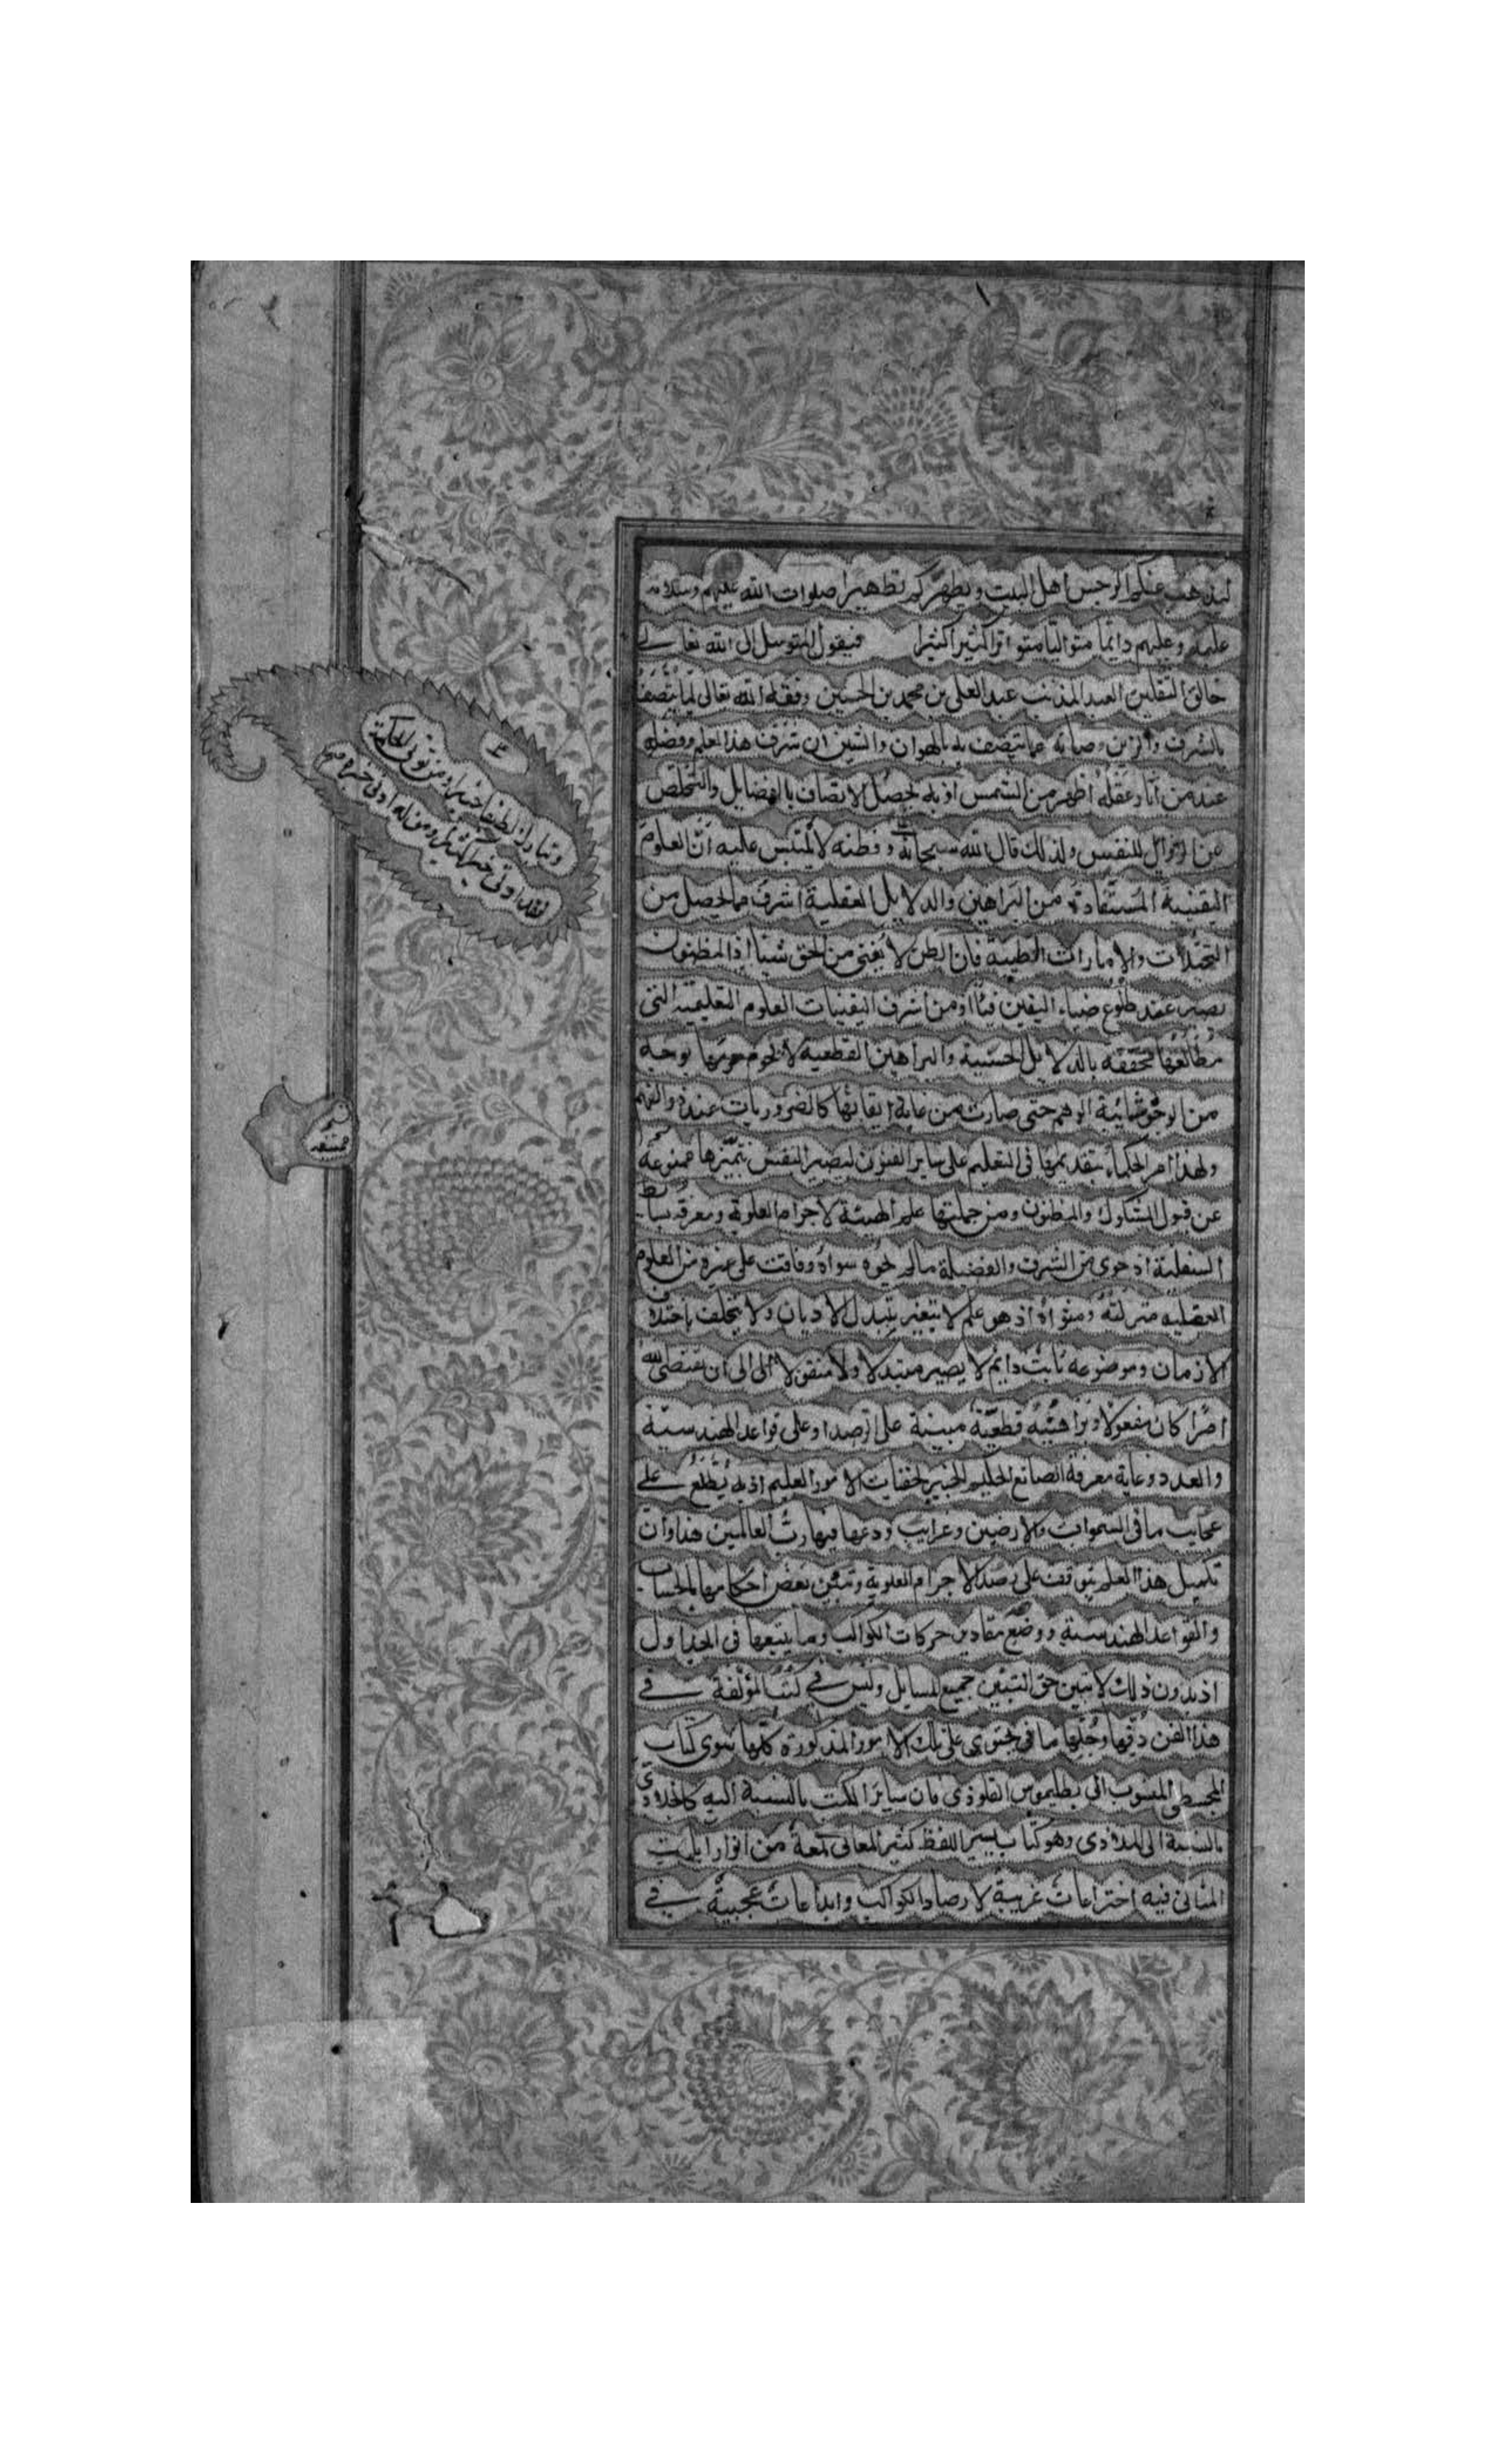 ليذهب عنكم الرجس اهل البيت ويطهركم تطهيرا صلوات الله عليهم وسلامه
عليه وعليهم دايمًا متواليًا متواترًا كثيرًا كثيرا فيقول المتوسل الى الله تعالى
خالق الثقلين العبد المذنب عبد العلى بن محمد بن الحسين وفقه الله تعالى لما يتصف
بالشرف والزين وصانه عما يتصف به بالهوان والشين ان شرف هذا العلم وفضله
عند من انار عقله اظهر من الشمس اذ به يحصل الاتصاف بالفضايل والتخلص
عن الرذايل للنفس ولذلك قال الله سبحانه وفطنه لا يلتبس عليه انّ العلوم
اليقينية المستفادة من البراهين والدلايل العقلية اشرف مما يحصل من
والامارات الظنية فان الظن لا يغنى من الحق شيئا اذ المظنون
يصير عند طلوع ضياء اليقين ومن اشرف اليقينيات العلوم التعليمية التى
محققه بالدلايل الحسّية والبراهين القطعية لا يحوم حومها بوجه
من الوجوه شائبة الوهم حتى صارت من غاية ايقانها كالضروريات عند ذوالفهم
ولهذا امر الحكماء بتقديمها فى التعليم على ساير الفنون ليصير النفس بتميّزها ممنوعة
عن قبول الشكوك والظنون ومن جملتها علم الهيئة لاجرام العلوية ومعرفة بسايط
السفلية اذ حوى من الشرف والفضيلة مالم يحوه سواه وفاقت على غيره من العلوم
العقلية منزلته ومثواه اذ هو علم لا يتغير بتبدل الاديان ولا يختلف باختلاف
الازمان وموضوعه ثابت دايم لا يصير متبدلا ولا منتقلا الى ان يقضى الله
امرًا كان مفعولا وبراهينه قطعيّة مبينة على الرصد وعلى قواعد الهندسيّة
والعدد وغاية معرفة الصانع الحكيم الخبير لخفيات الامور العليم اذ به يُطّلعُ على
عجايب ما فى السموات والارضين وغرايب ودعها فيها ربُّ العالمين هذا وانّ
تكميل هذا العلم يتوقف على رصد الاجرام العلوية وتبيّن بعض احكامها بالحساب
والقواعد الهندسية ووضع مقادير حركات الكواكب وما يتبعها فى الجداول
اذ بدون ذلك لا تبين حق التبيّن جميع المسايل وليس فى كتب المؤلفة فى
هذا الفن دقّها وجُلّها ما يحتوى على تلك الامور المذكورة كلّها سوى كتاب
المجسطى المنسوب الى بطليموس القلوذى فان سايرَ الكتب بالنسبة اليه
بالنسبة الى وهو كتاب يسير اللفظ كثير المعانى لمعة من انوار
المثانى فيه اختراعات غريبة لارصاد الكواكب وابداعات عجيبة فى
وتبارك لطفا خبيرا ومن يؤتى الحكمة
فقد اوتى خيرا كثيرا ومن